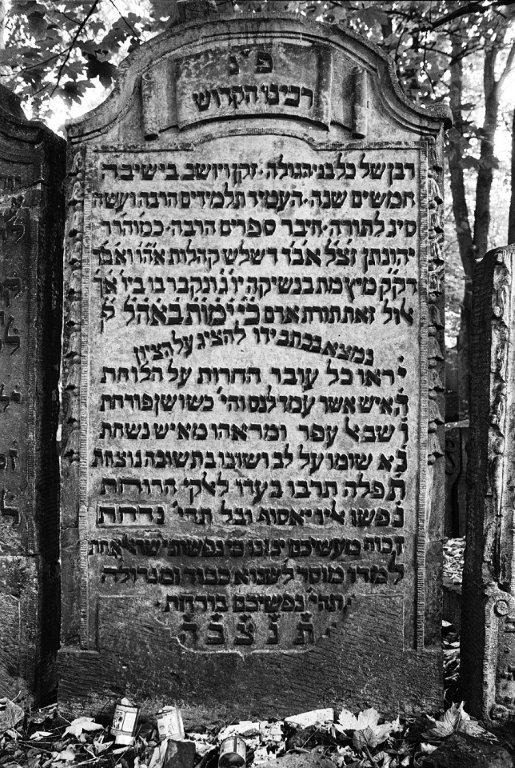 פ נ
רבינו הקדוש
רבן של כל בני הגולה. זקן ויושב בישיבה
חמשים שנה. העמיד תלמידים הרבה ועשה
סיג לתורה. חיבר ספרים הרבה. כמוהרר
יהונתן זצל אבד דשלש קהלות אהו ואבד
דקק מיץ מת בנשיקה יו נתקבר בו ביו
אול זאת תורת אדם כי ימות באהל
נמצא בכתב ידו להציג על הציון
יראו כל עובר החרות על הלוחת
האיש אשר עמד לנס והי' כשושן פורחת
ושב אל עפר ומראהו מאיש נשחת
נא שומו על לב ושובו בתשובה נוצחת
תפלה תרבו בעדו לאקי הרוחת
נפשו אליו יאסוף ובל תהי' נדחת
זכות מעשיכם כי נפשות ישראל אחת
למדו מוסר לשנוא כבוד ומגדולה
תהי' נפשיכם בורחת
ת נ צ ב ה